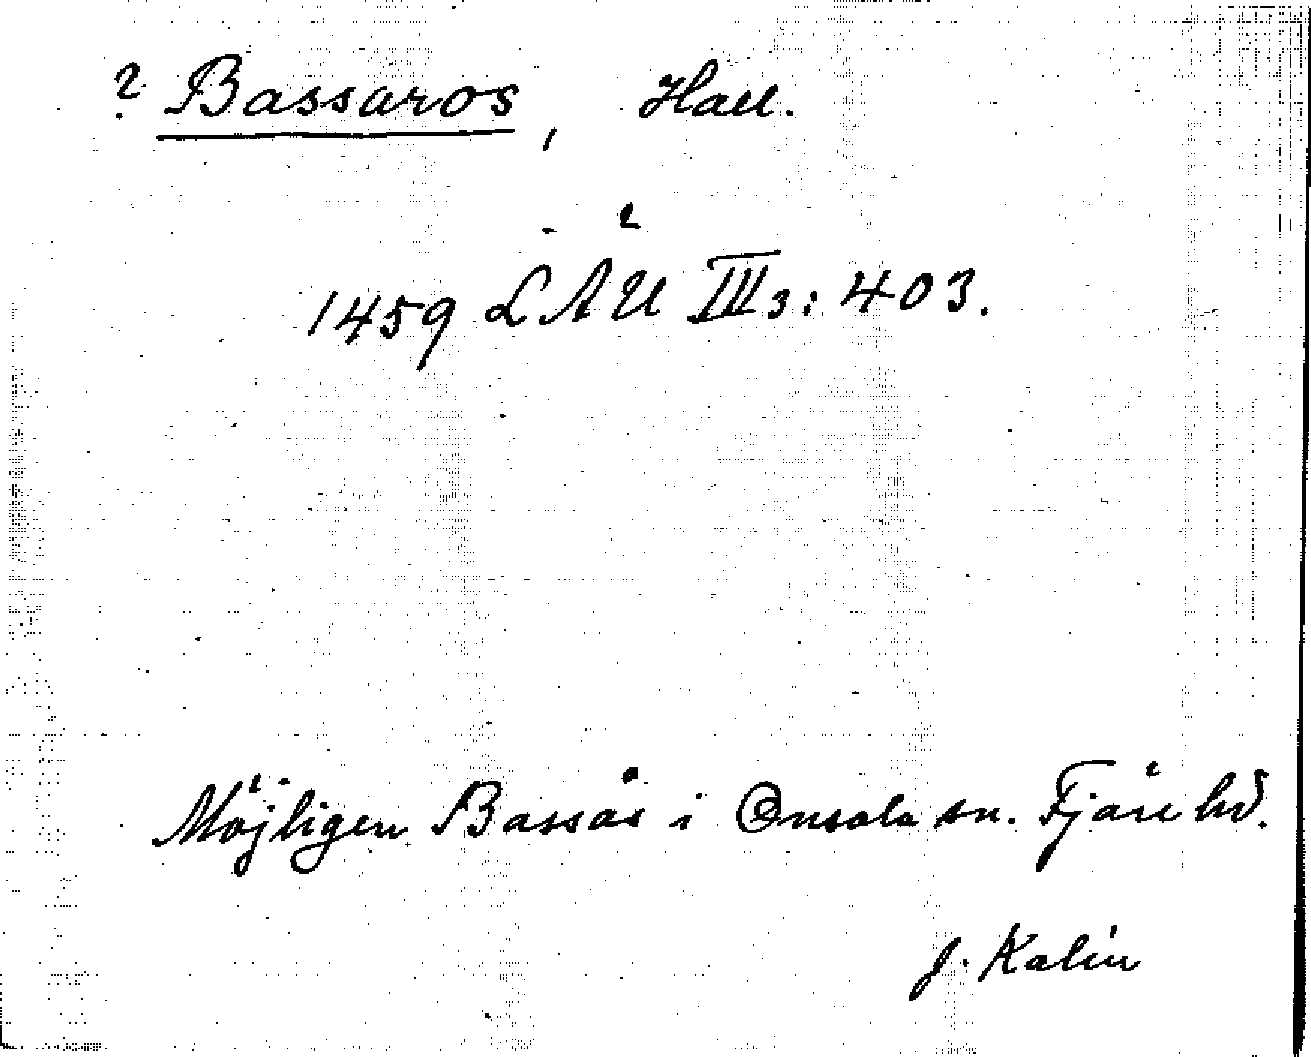 ? Bassaros, Hall.
1459 LÄU III3: 403.
Möjligen Bassås i Onsala sn. Fjäre hd.
J. Kalén